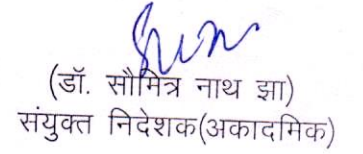 (डॉ. सौमित्र नाथ झा)
संयुक्त निदेशक(अकादमिक)